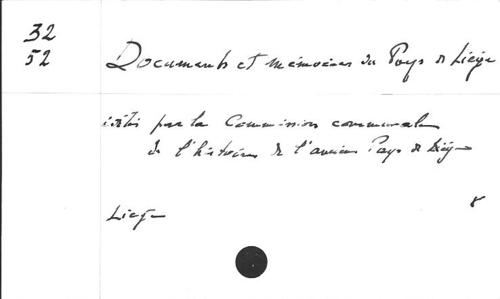 32
52
Documents et mémoires du Pays de Liège
édités par la Commission communale
de l'histoire de l'ancien Pays de Liège
Liège
8